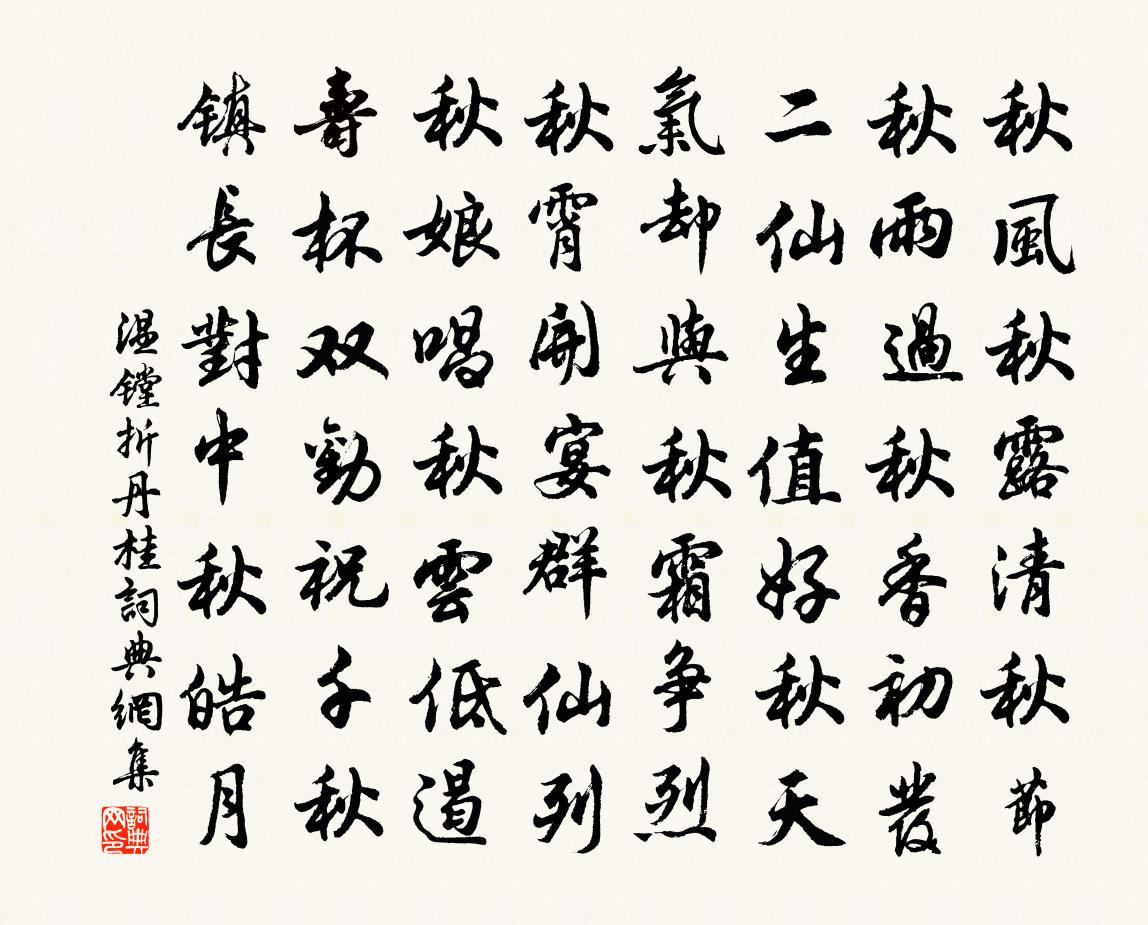 秋風秋露清秋節
秋雨過秋香初發
二仙生值好秋天
氣却與秋霜爭烈
秋霄開宴群仙列
秋娘唱秋雲低遏
壽杯双勸祝千秋
鎮長對中秋皓月
温鏜折丹桂詞典網集
詞典网印